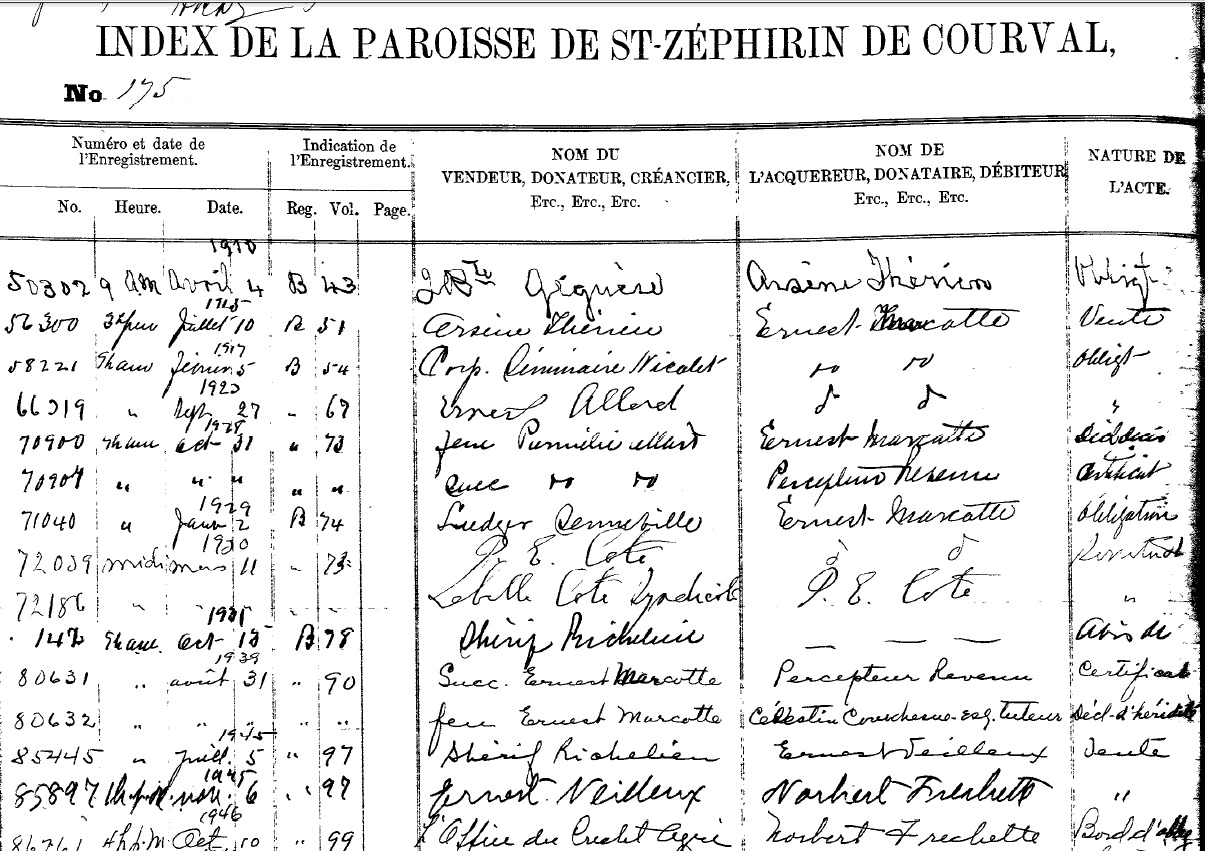 INDEX DE LA PAROISSE DE ST-ZÉPHIRIN DE COURVAL,
No 175
Numéro et date de l'Enregistrement.
Indication de l'Enregistrement.
NOM DU VENDEUR, DONATEUR, CRÉANCIER, ETC., ETC., ETC.
NOM DE L'ACQUEREUR, DONATAIRE, DÉBITEUR ETC., ETC., ETC.
NATURE DE L'ACTE.
No. Heure. Date. Reg. Vol. Page.
1910
50302 9 AM Avril 4 B 43 Arsène Thérien Obligt
1915
56300 Juillet 10 B 51 Arsène Thérien Ernest Marcotte Vente
1917
58221 9 ham 5 B 54 Corp. Séminaire Nicolet " " Obligt
66019 " Sept. 27 " 67 Ernest Allard d d "
1928
70900 9 ham Oct 31 " 73 feue Ernest Marcotte
" " " " " succ " " Percepteur Certificat
1929
71040 " Janv 2 B 74 Ludger Senneville Ernest Marcotte Obligation
1930
72039 midi mars 11 " 73 P. E. Cote d d
72186 " " " " Lebelle Cote Syndicat P. E. Cote "
142 9 ham Oct 15 B 78 Shérif Richelieu — — — Avis de
1939
80631 " août 31 " 90 Succ. Ernest Marcotte Percepteur Revenu Certificat
80632 " " " " " feu Ernest Marcotte Célestin Courchesne Esq. tuteur Décl-d'hérédité
1945
85445 " Juill. 5 " 97 Shérif Richelieu Ernest Veilleux Vente
1945
85897 nov. 6 " 97 Ernest Veilleux Norbert Frechette "
1946
86761 4 h p.m Oct 10 " 99 L'Office du Credit Agric Norbert Frechette Bord d'